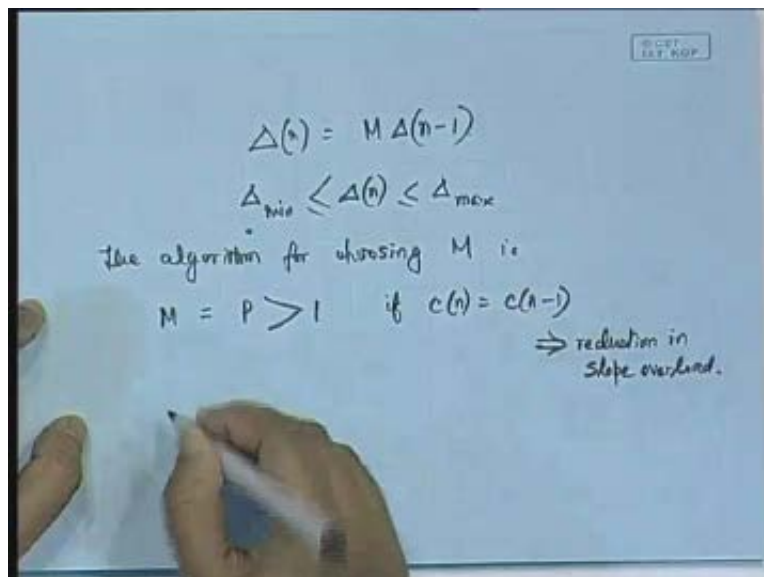 © CET
I.I.T. KGP
Δ(n) = M Δ(n-1)
Δmin ≤ Δ(n) ≤ Δmax
The algorithm for choosing M is
M = P > 1 if c(n) = c(n-1)
⇒ reduction in
slope overload.